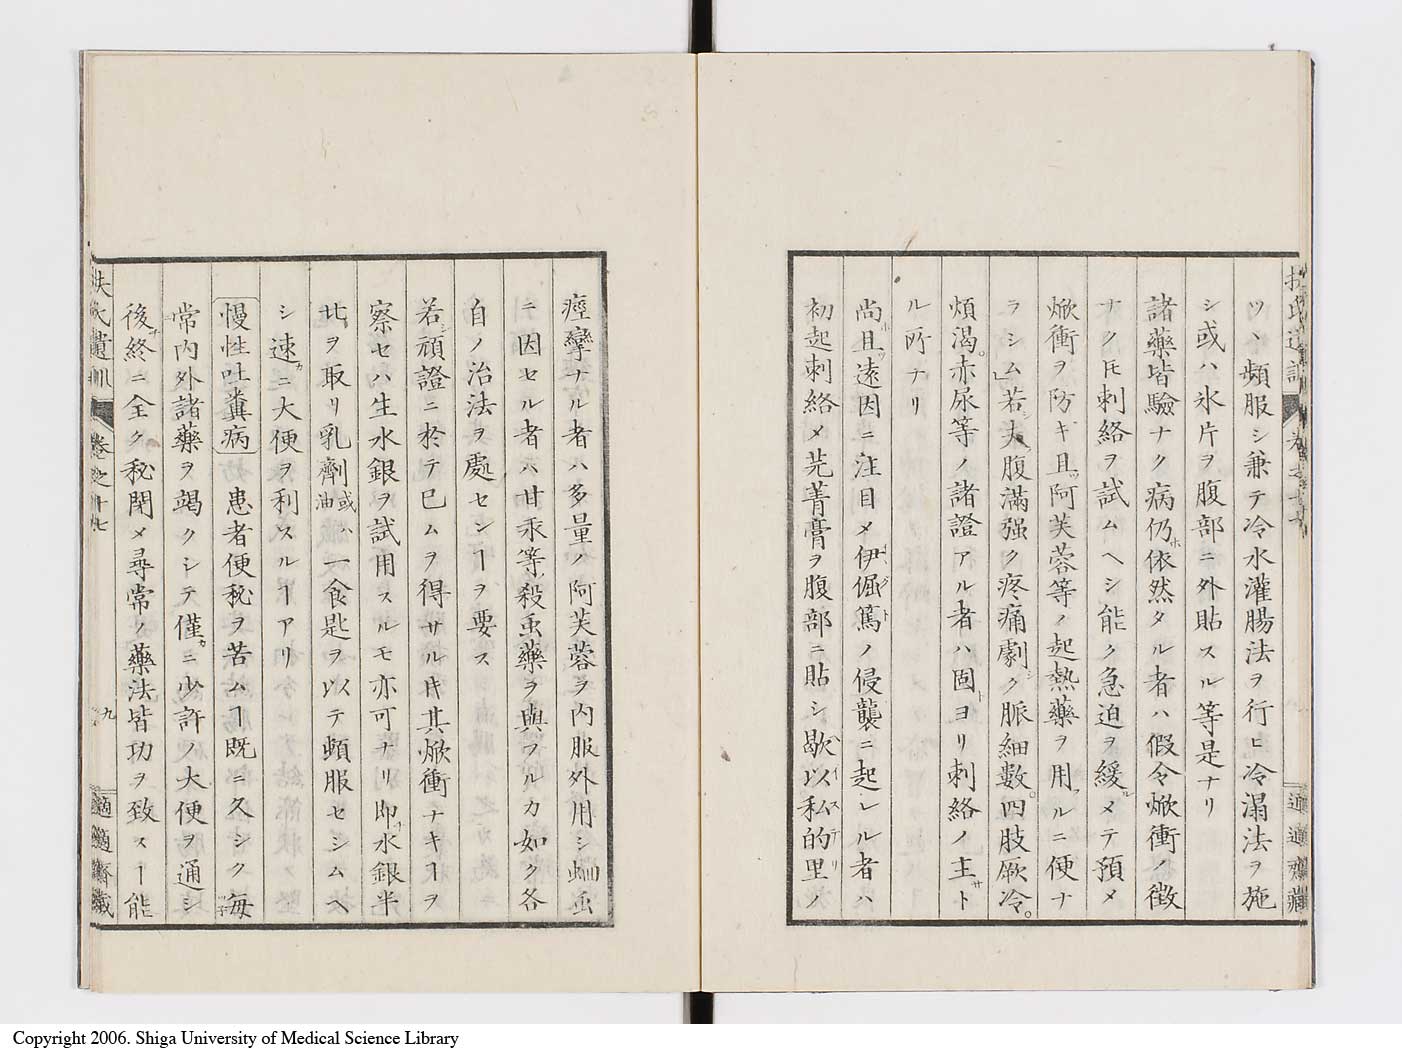 ツヽ頻服シ兼テ冷水灌腸法ヲ行ヒ冷溻法ヲ施
シ或ハ氷片ヲ腹部ニ外貼スル等是ナリ
諸藥皆驗ナク病仍依然タル者ハ假令焮衝徴
ナクㇳモ刺絡ヲ試ムヘシ能ク急迫ヲ緩メテ預メ
焮衝ヲ防キ且阿芙蓉等ノ起熱藥ヲ用ルニ便ナ
ラシム若夫腹滿强ク疼痛劇ク脈細數四肢厥冷。
煩渇。赤尿等ノ諸證アル者ハ固ヨリ刺絡ノ主ト
ル所ナリ
尚且遠因ニ注目メ伊倔篤ノ侵襲ニ起レル者ハ
初起刺絡メ芫菁膏ヲ腹部ニ貼シ歇以私的里ノ
痙攣ナル者ハ多量ノ阿芙蓉ヲ内服外用シ蛔䖝
ニ因セル者ハ甘汞等殺䖝藥ヲ與フルカ如ク各
自ノ治法ヲ處センㄱヲ要ス
若シ頑證ニ於テ已ムヲ得サル㆑其焮衝ナキㄱヲ
察セハ生水銀ヲ試用スルモ亦可ナリ即水銀半
ヲ取リ乳劑或ハ油一食匙ヲ以テ頓服セシムヘ
シ速ニ大便ヲ利スルㄱアリ
慢性吐糞病 患者便秘ヲ苦ムㄱ既ニ久シク毎
常内外諸藥ヲ竭クシテ僅ニ少許ノ大便ヲ通シ
後終ニ全ク秘閉メ尋常ノ藥法皆功ヲ致スㄱ能
扶氏遺訓 卷之十七 九 適適齋藏
Copyright 2006. Shiga University of Medical Science Library